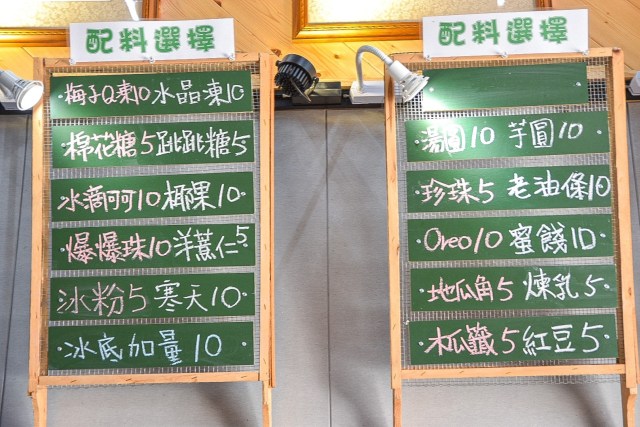 配料選擇
梅子Q凍10 水晶凍10
棉花糖5 跳跳糖5
水滴阿10 椰果10
爆爆珠10 洋薏仁5
冰粉5 寒天10
冰底加量10
配料選擇
湯圓10 芋圓10
珍珠5 老油條10
Oreo10 蜜餞10
地瓜角5 煉乳5
木瓜籤5 紅豆5